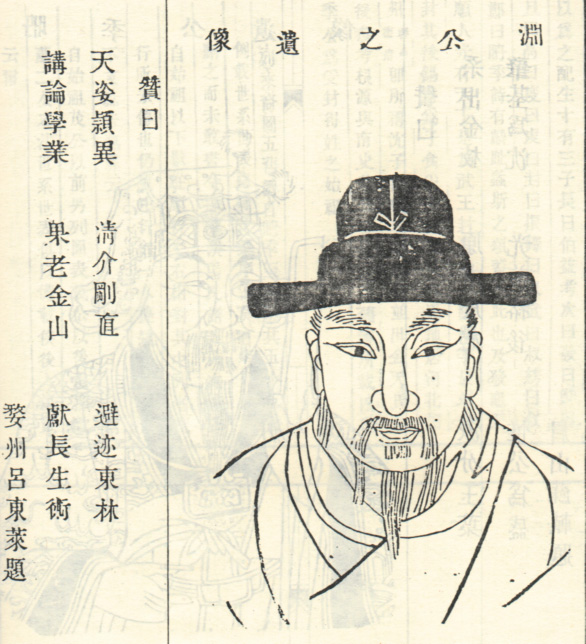 淵公之遺像
贊曰
天姿頴異 淸介剛直 避迹東林
講論學業 果老金山 獻長生術
婺州呂東萊題